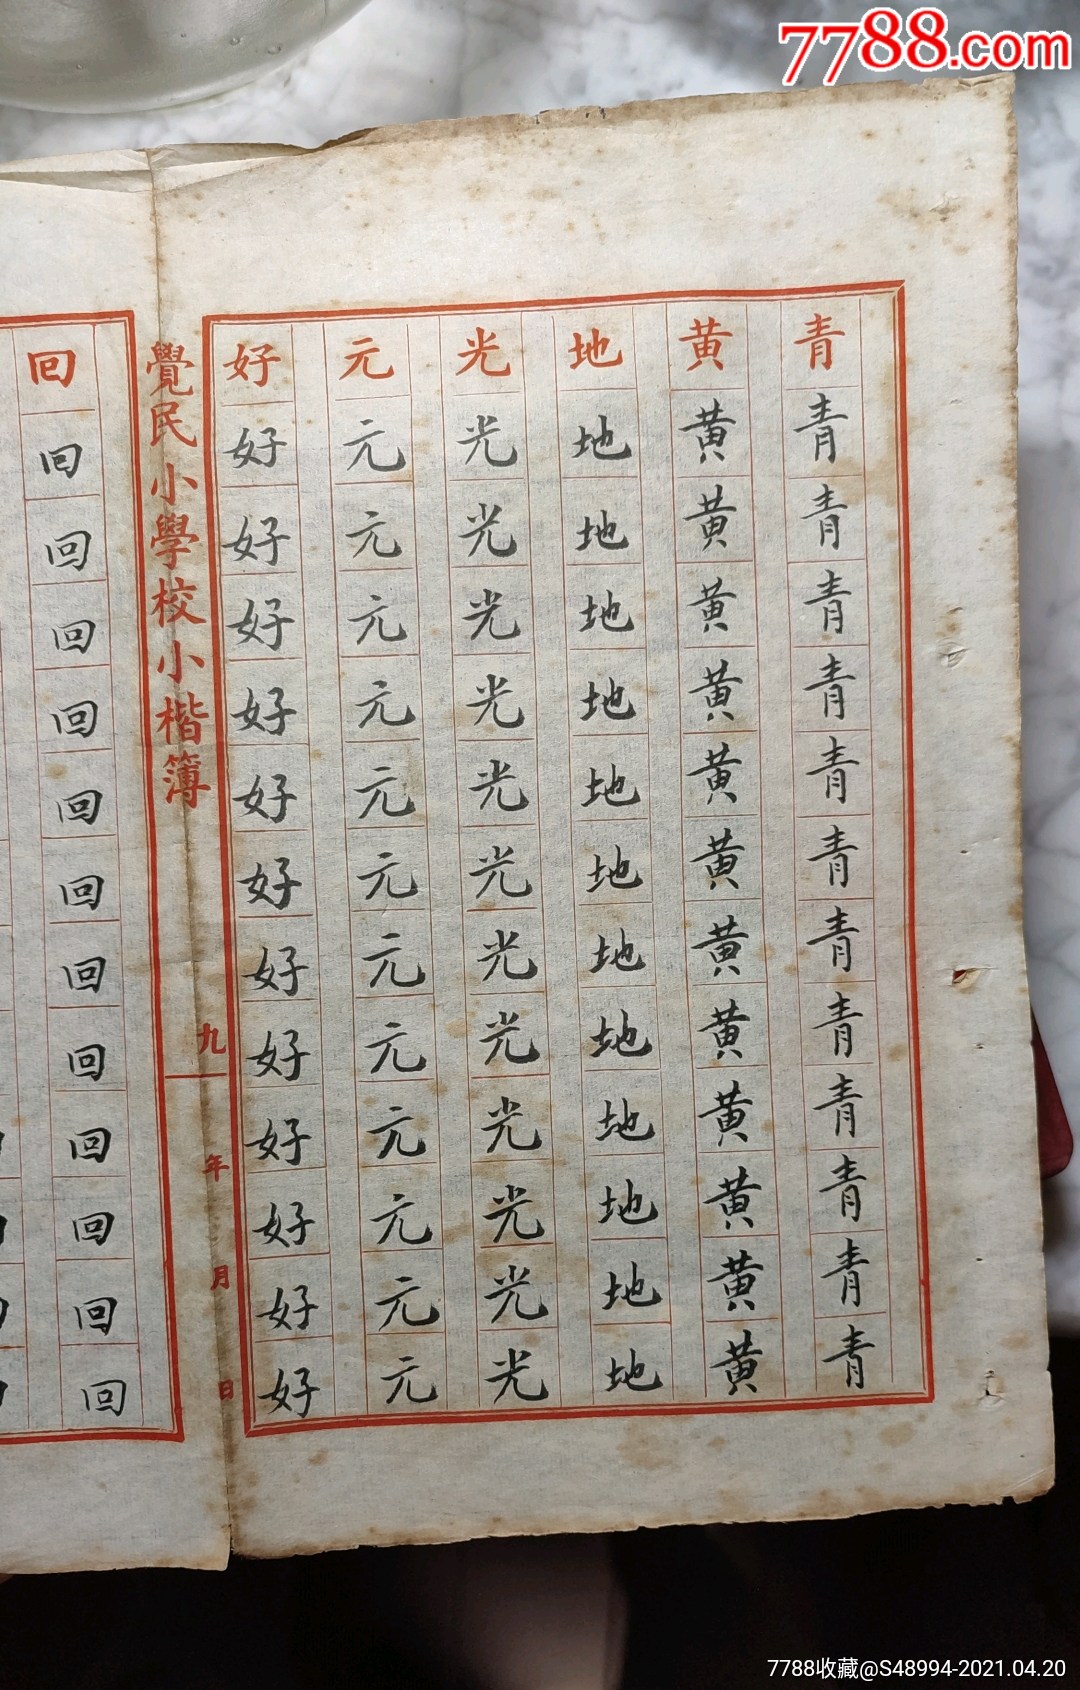 7788.com
青青青青青青青青青青青青青
黄黄黄黄黄黄黄黄黄黄黄黄黄
地地地地地地地地地地地地地
光光光光光光光光光光光光光
元元元元元元元元元元元元元
好好好好好好好好好好好好好
覺民小學校小楷簿
九
年 月 日
回回回回回回回回回回回回回
7788收藏@S48994-2021.04.20